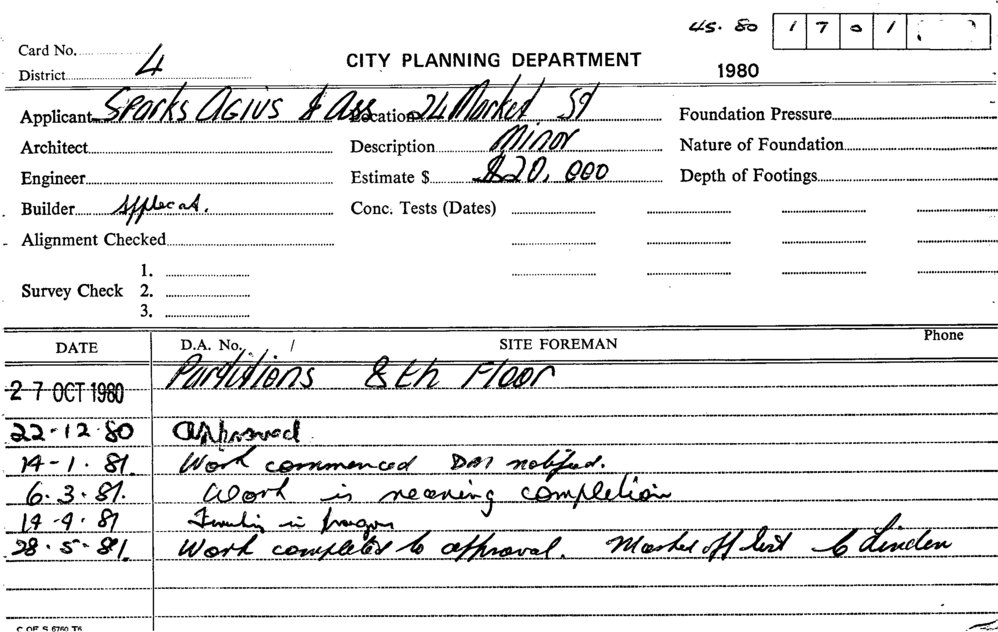 45. 80 1701
Card No.
District 4
CITY PLANNING DEPARTMENT
1980
Applicant Sparks Agius & Ass Location 24 Market St Foundation Pressure
Architect Description Minor Nature of Foundation
Engineer Estimate $ $20,000 Depth of Footings
Builder Applicat. Conc. Tests (Dates)
Alignment Checked
1.
Survey Check 2.
3.
DATE D.A. No. / SITE FOREMAN Phone
27 OCT 1980 Partitions 8th Floor
22-12-80 Approved
14-1-81. Work commenced notified.
6.3.81. Work is nearing completion
14-4-81 in
28.5.81. Work completed to approval. Marked off list Linden
C OF S 6760 T6